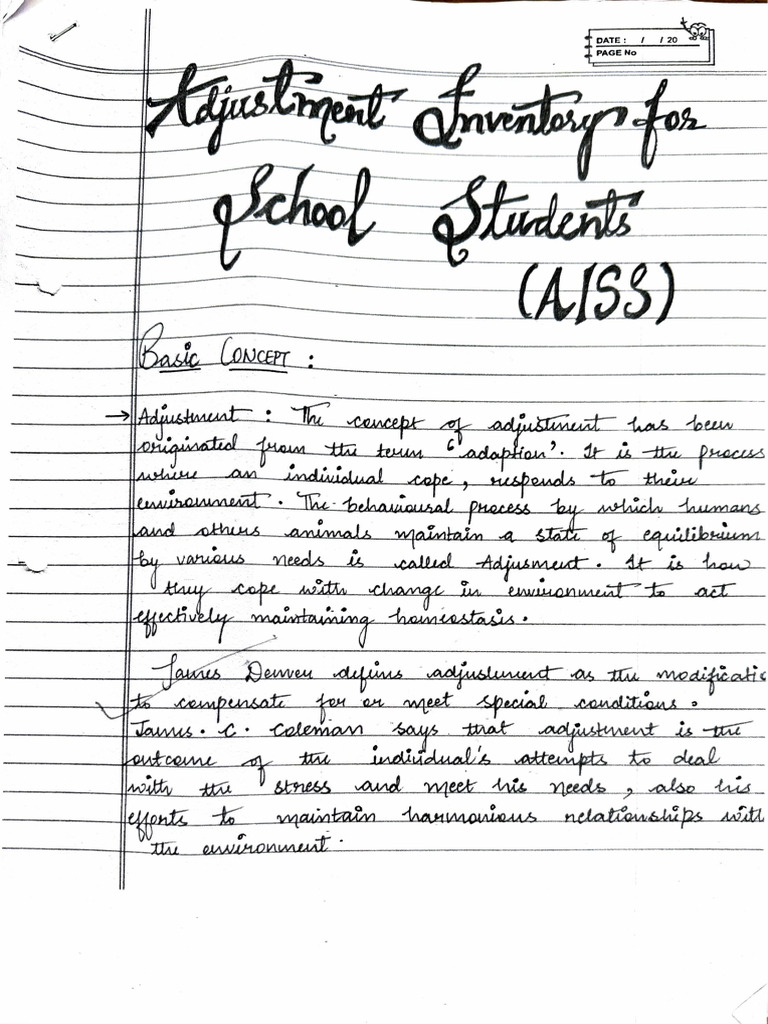 DATE : / / 20
PAGE No
Adjustment Inventory for
School Students
(AISS)
Basic CONCEPT :
→ Adjustment : The concept of adjustment has been
originated from the term "adaption". It is the process
where an individual cope, responds to their
environment. The behavioural process by which humans
and others animals maintain a state of equilibrium
by various needs is called Adjusment. It is how
they cope with change in environment to act
effectively maintaining homeostasis.
James Denver defins adjustment as the modificatio
to compensate for or meet special conditions.
James. C. Coleman says that adjustment is the
outcome of the individual's attempts to deal
with the stress and meet his needs, also his
efforts to maintain harmonious relationships with
the environment.